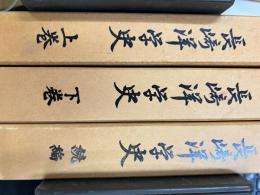 長崎洋学史 上巻
長崎洋学史 下巻
長崎洋学史 続編